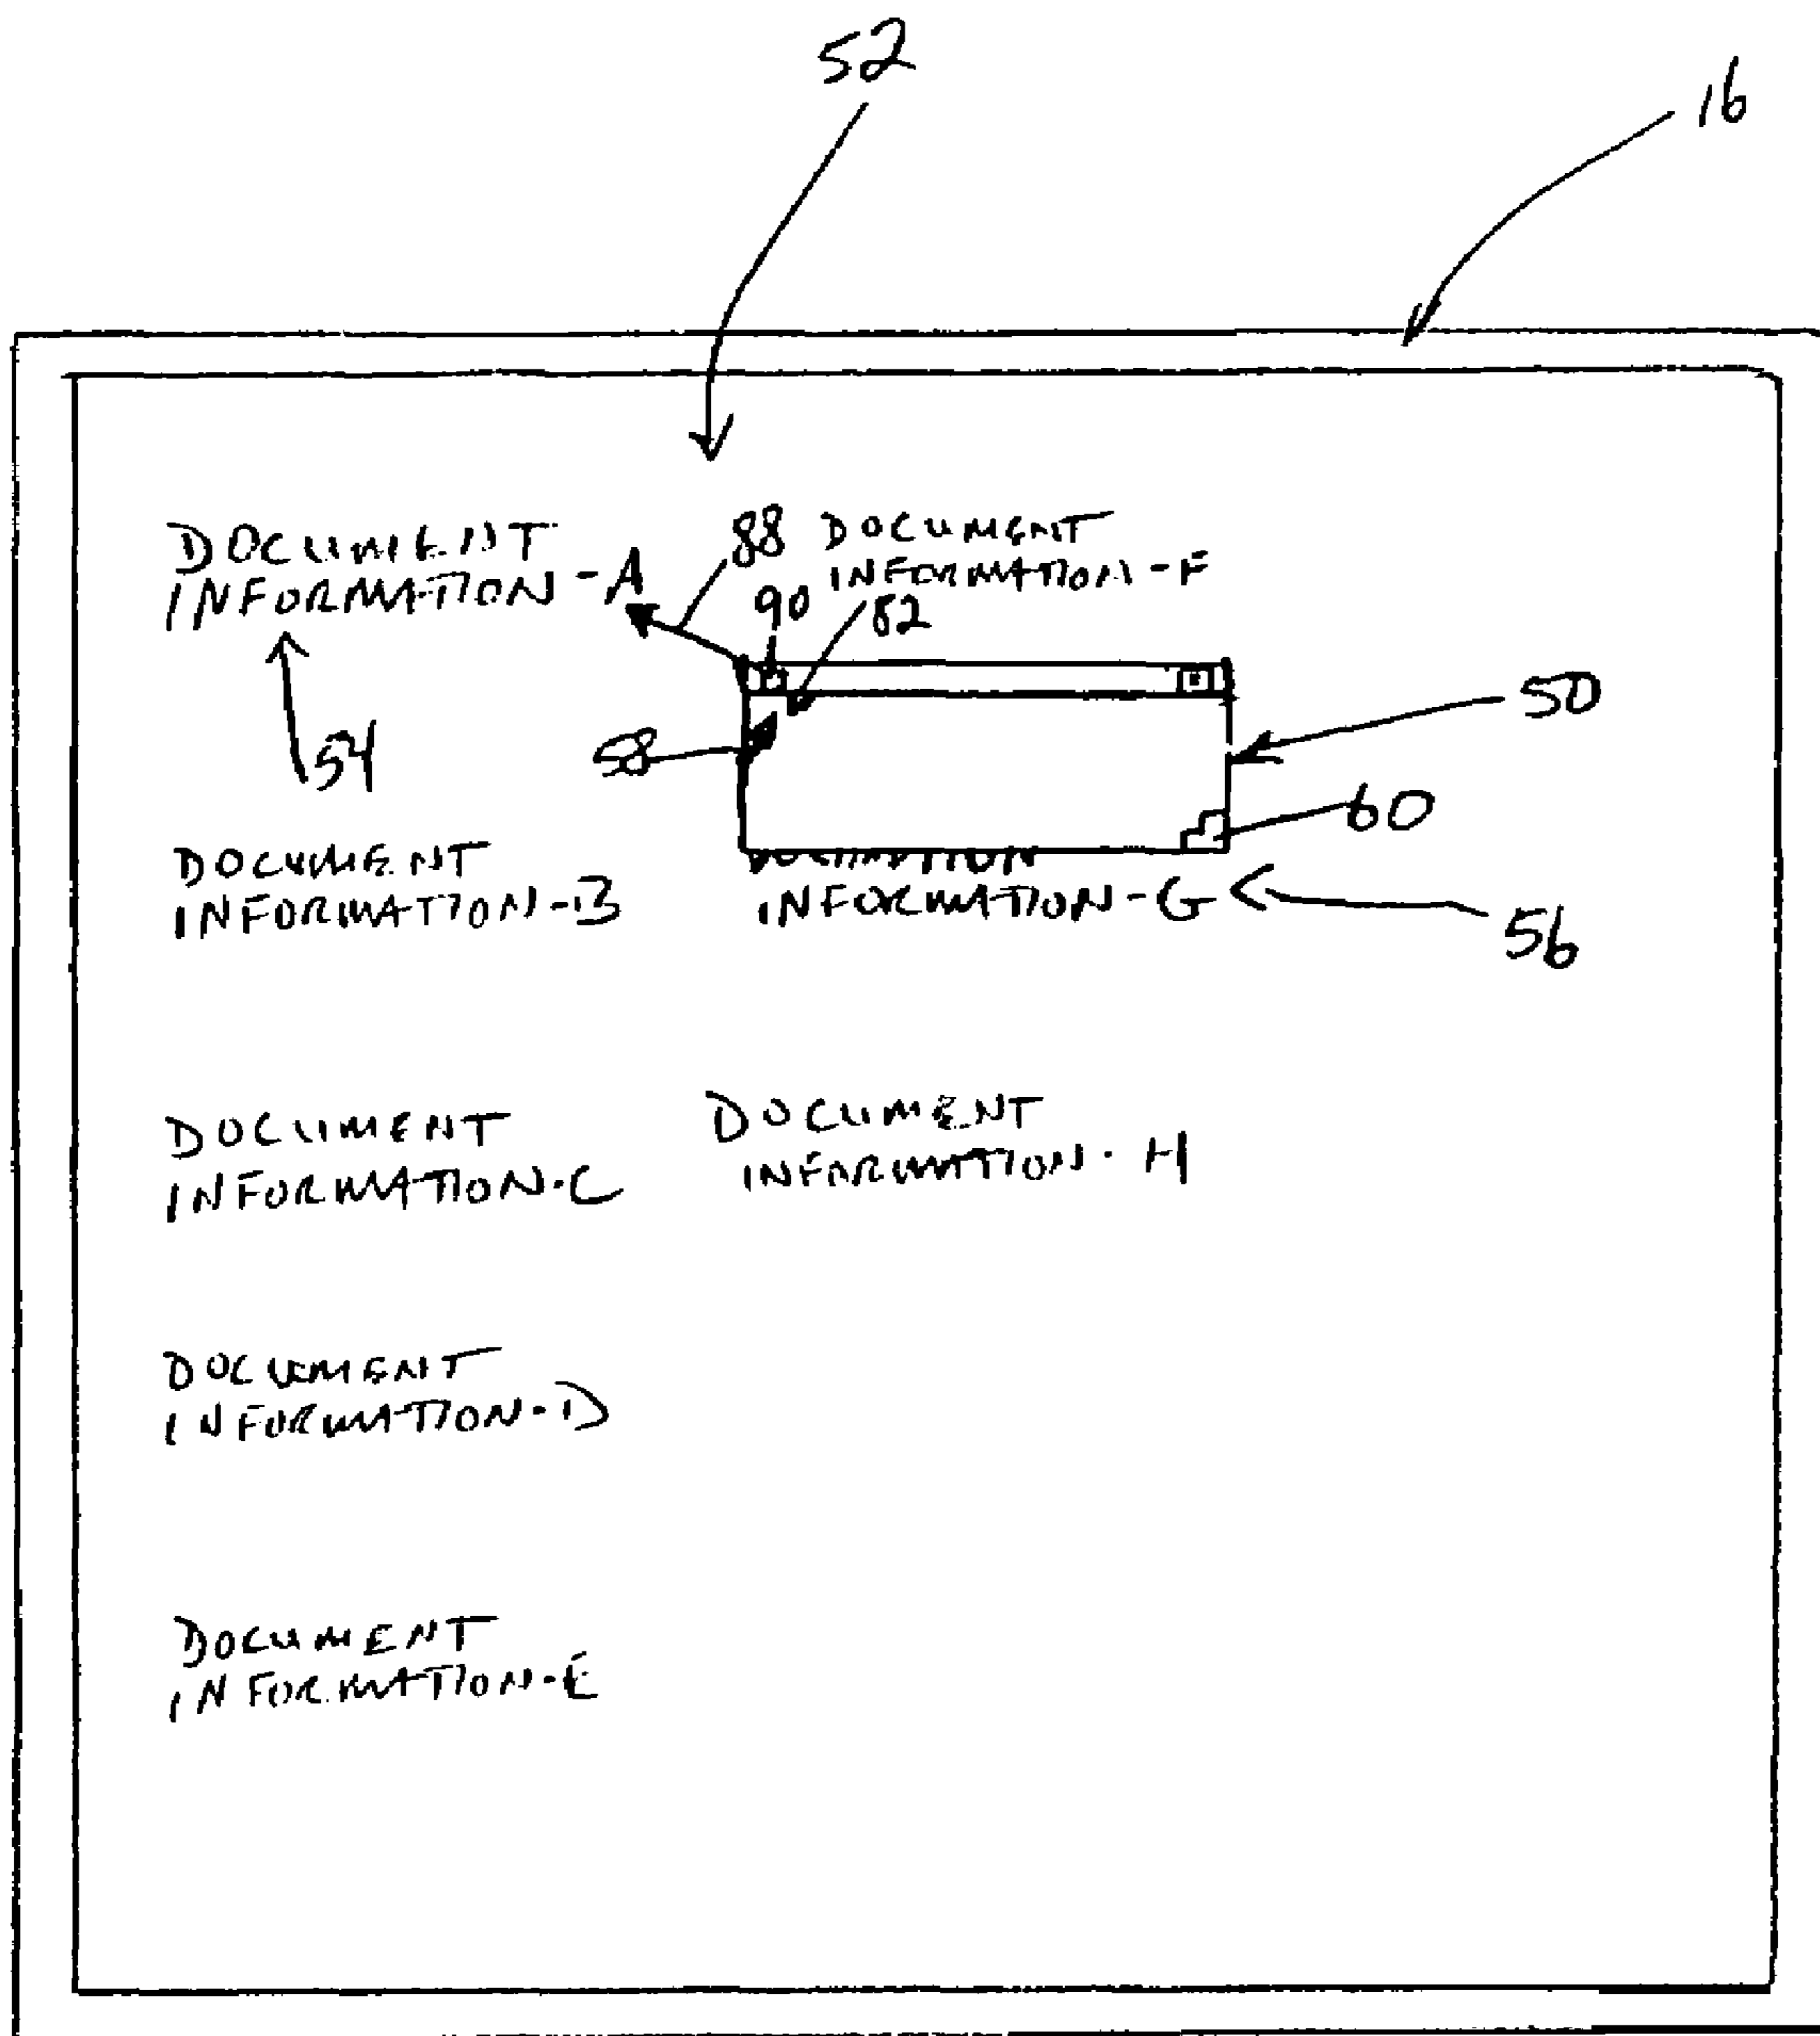 52
16
DOCUMENT
INFORMATION-A
88
DOCUMENT
INFORMATION-F
90
82
54
58
50
60
DOCUMENT
INFORMATION-B
INFORMATION-G
56
DOCUMENT
INFORMATION-C
DOCUMENT
INFORMATION-H
DOCUMENT
INFORMATION-D
DOCUMENT
INFORMATION-E